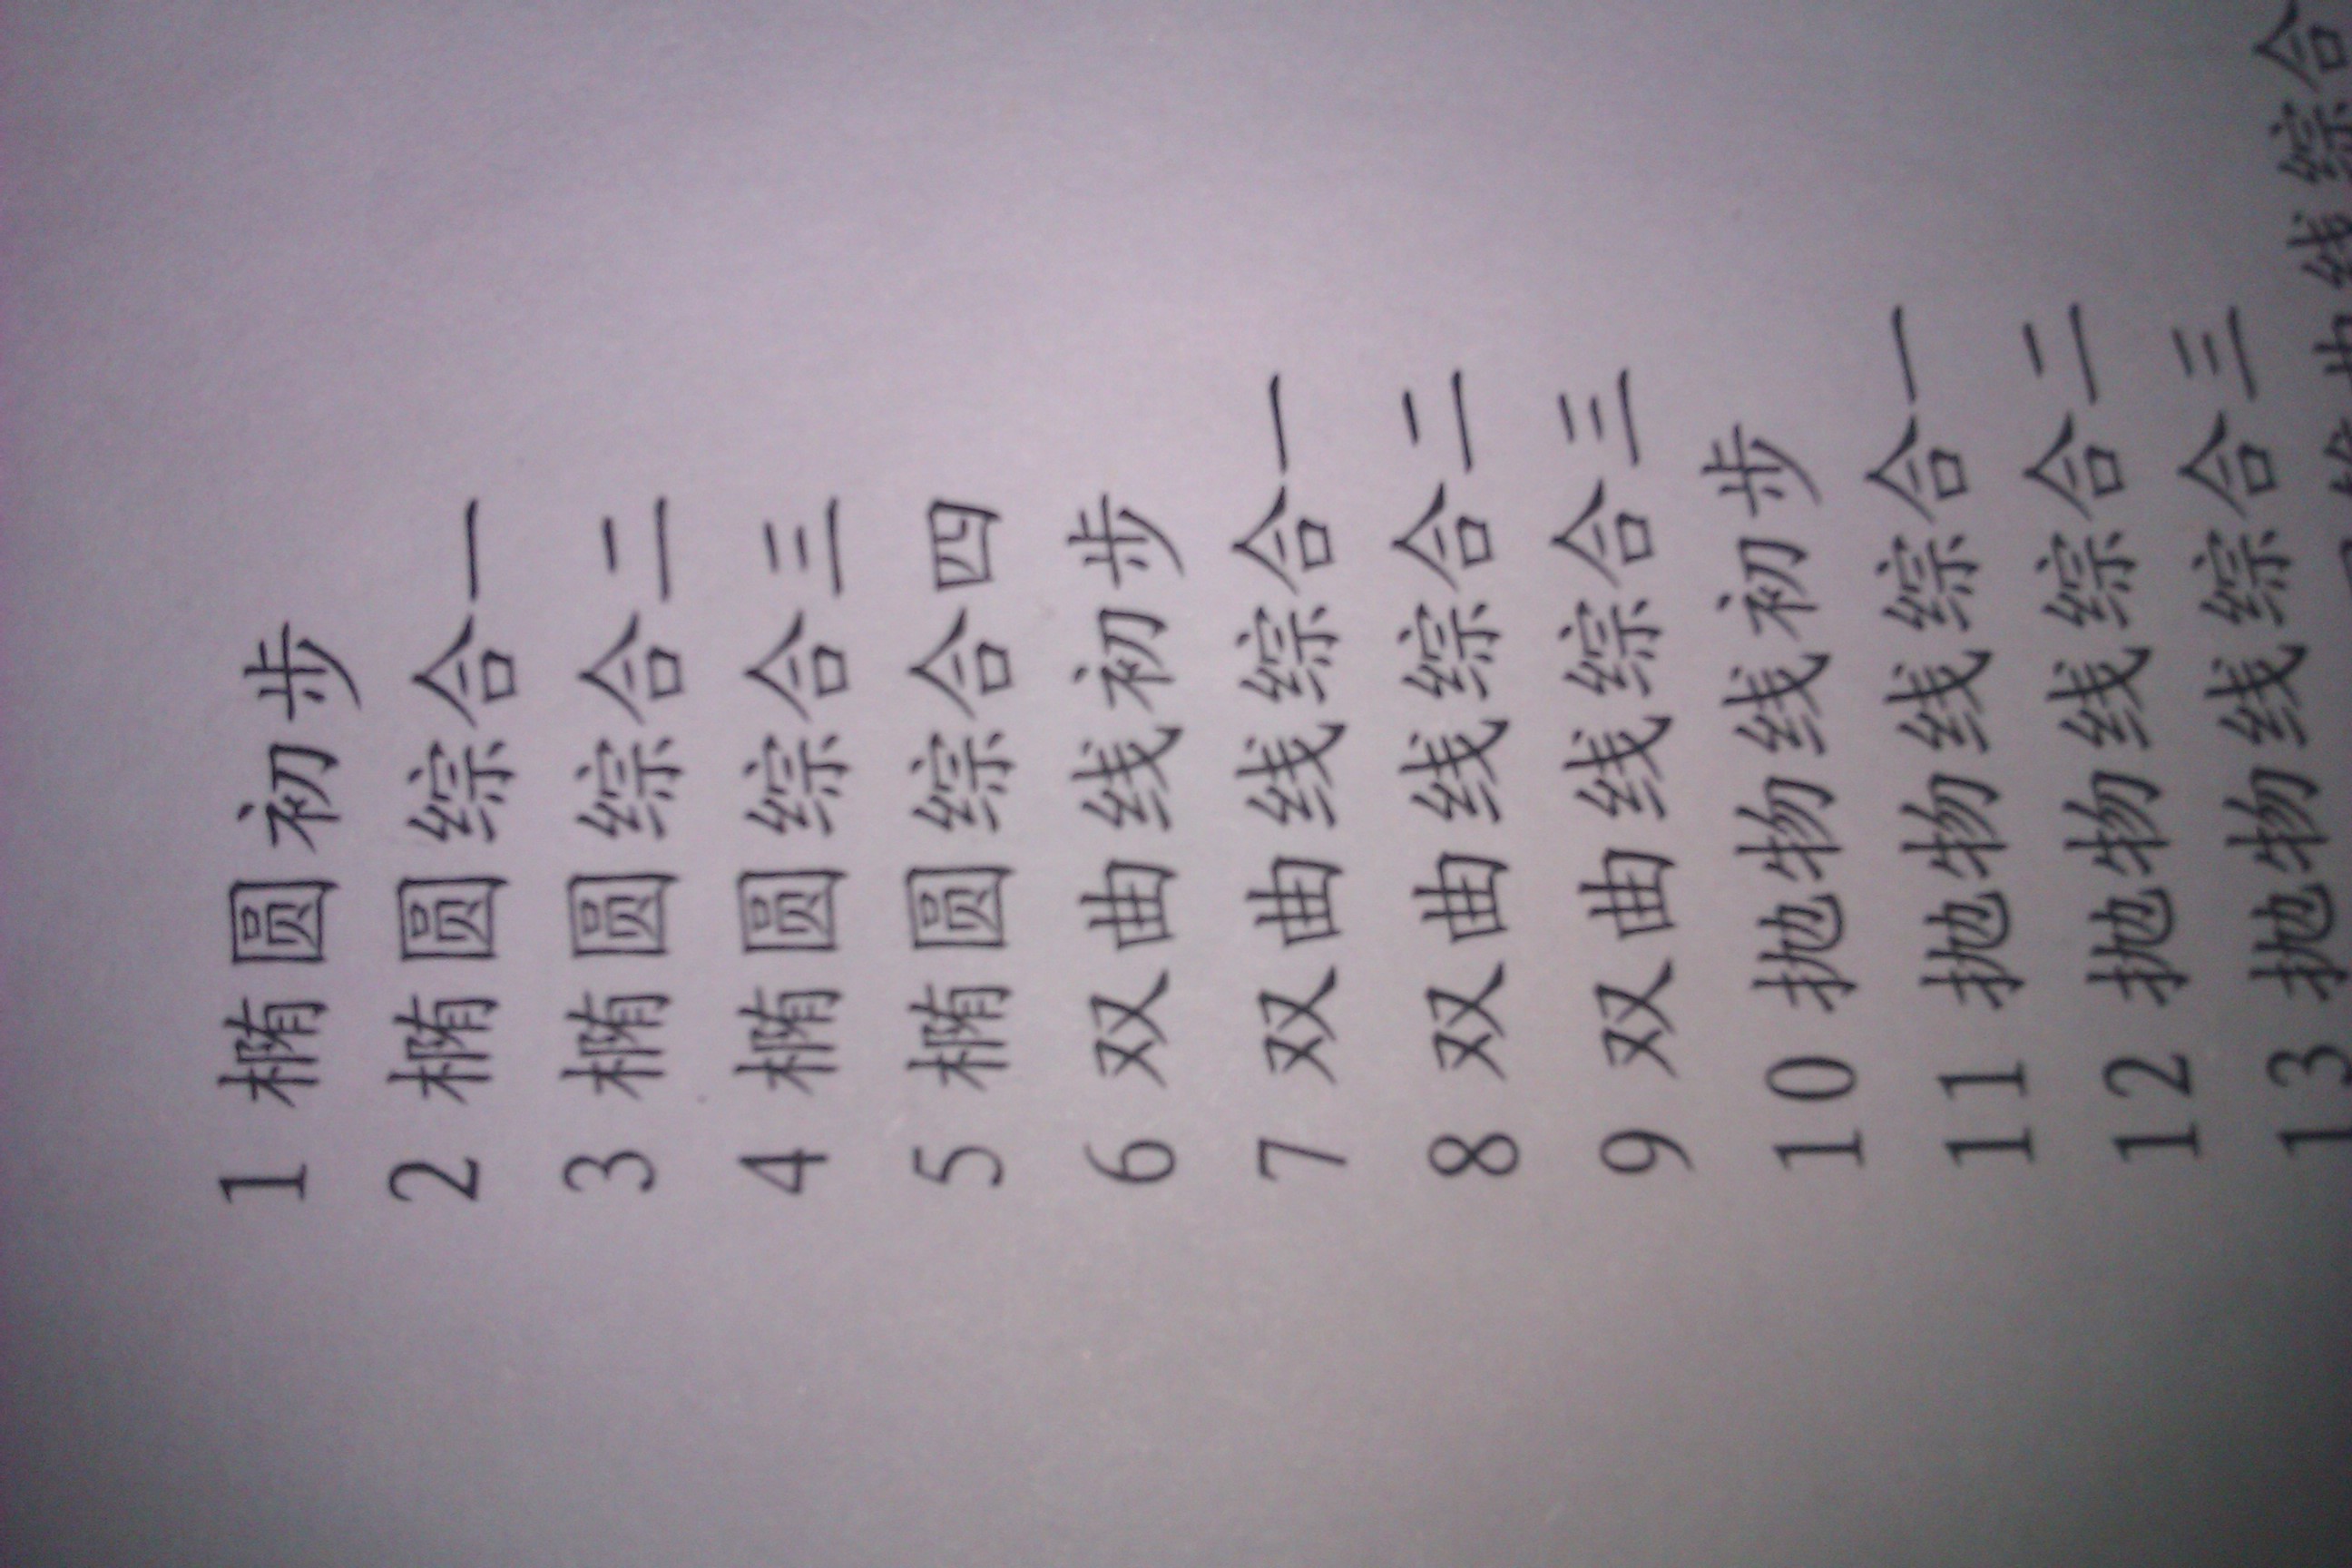 1 椭圆初步
2 椭圆综合一
3 椭圆综合二
4 椭圆综合三
5 椭圆综合四
6 双曲线初步
7 双曲线综合一
8 双曲线综合二
9 双曲线综合三
10 抛物线初步
11 抛物线综合一
12 抛物线综合二
13 抛物线综合三
曲线综合